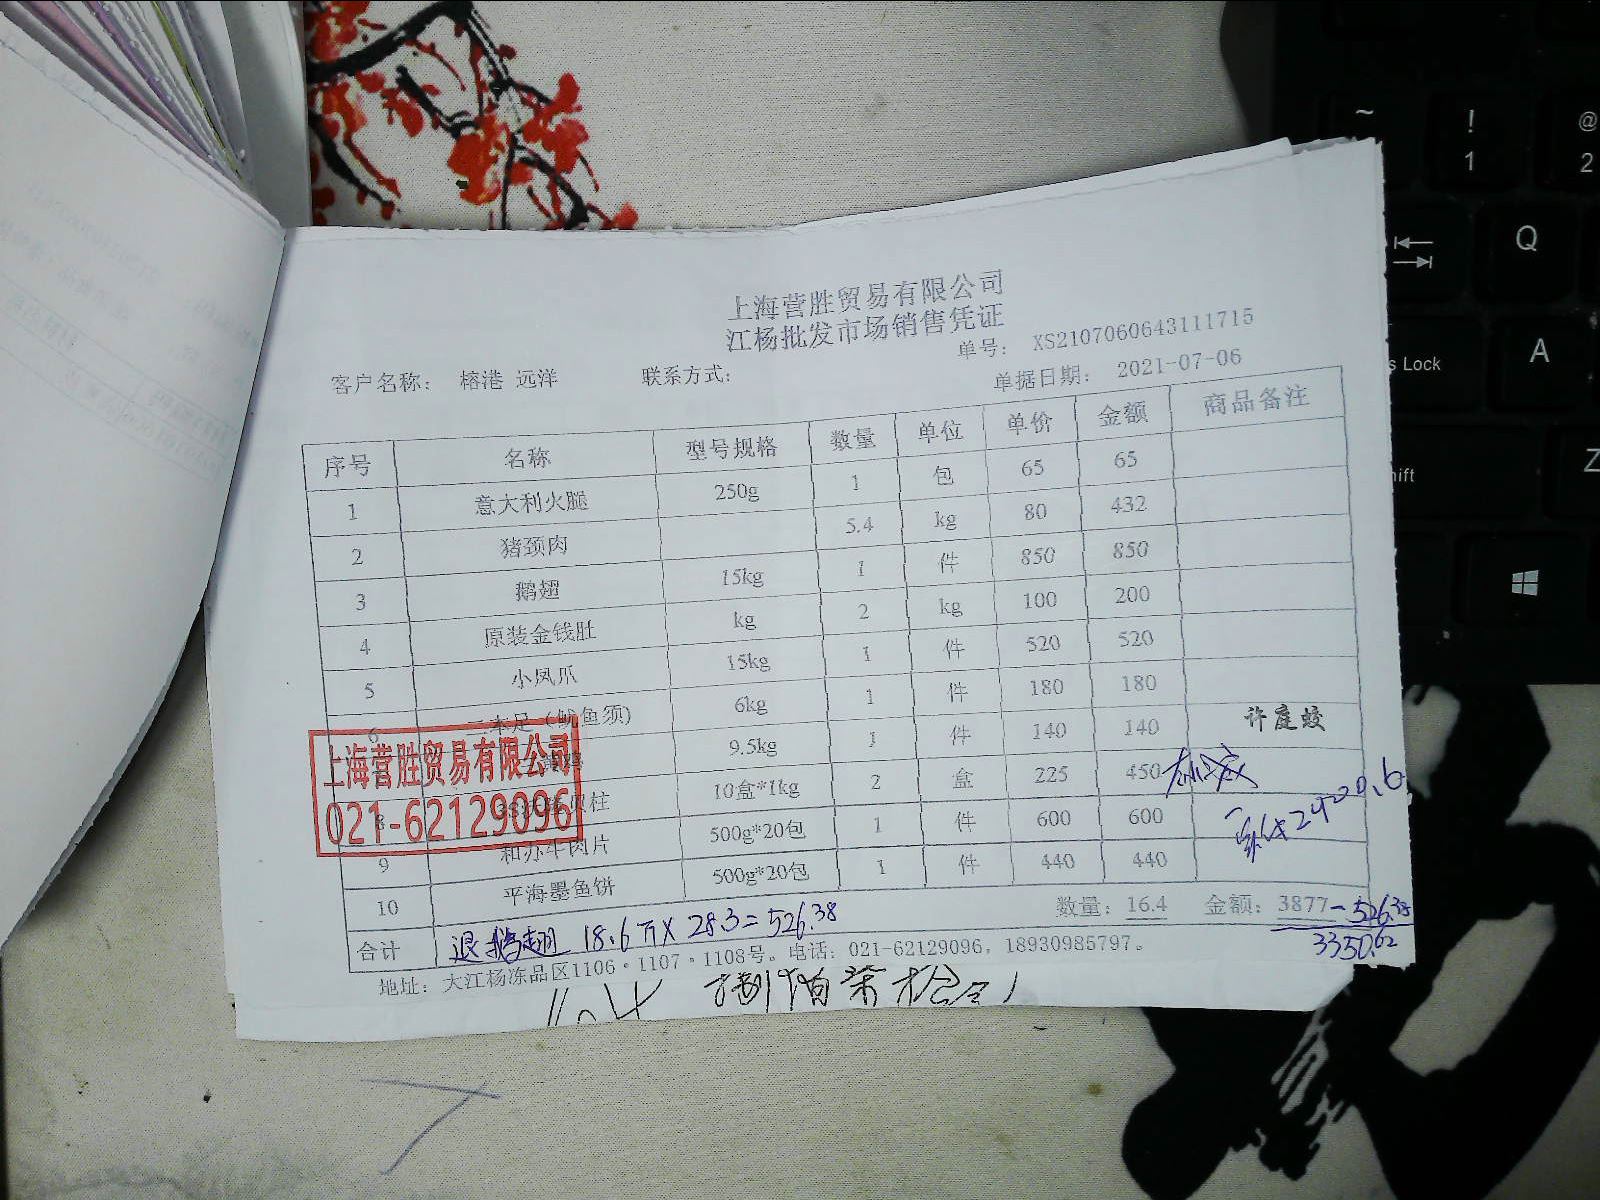 上海营胜贸易有限公司
江杨批发市场销售凭证
单号： XS2107060643111715
客户名称： 榕港 远洋 联系方式： 单据日期： 2021-07-06
序号 名称 型号规格 数量 单位 单价 金额 商品备注
1 意大利火腿 250g 1 包 65 65
2 猪颈肉 5.4 kg 80 432
3 鹅翅 15kg 1 件 850 850
4 原装金钱肚 kg 2 kg 100 200
5 小凤爪 15kg 1 件 520 520
6 二本足（鱿鱼须） 6kg 1 件 180 180
9.5kg 1 件 140 140
8 贝柱 10盒*1kg 2 盒 225 450
9 和苏牛肉片 500g*20包 1 件 600 600
10 平海墨鱼饼 500g*20包 1 件 440 440
合计 数量：16.4 金额：3877 - 526.38
退鹅翅 18.6斤X 28.3=526.38
3350.62
地址：大江杨冻品区1106·1107·1108号。电话：021-62129096，18930985797。
上海营胜贸易有限公司
021-62129096
许庭蛟
2400.6
~
!
1
@
2
Q
A
s Lock
Z
ift